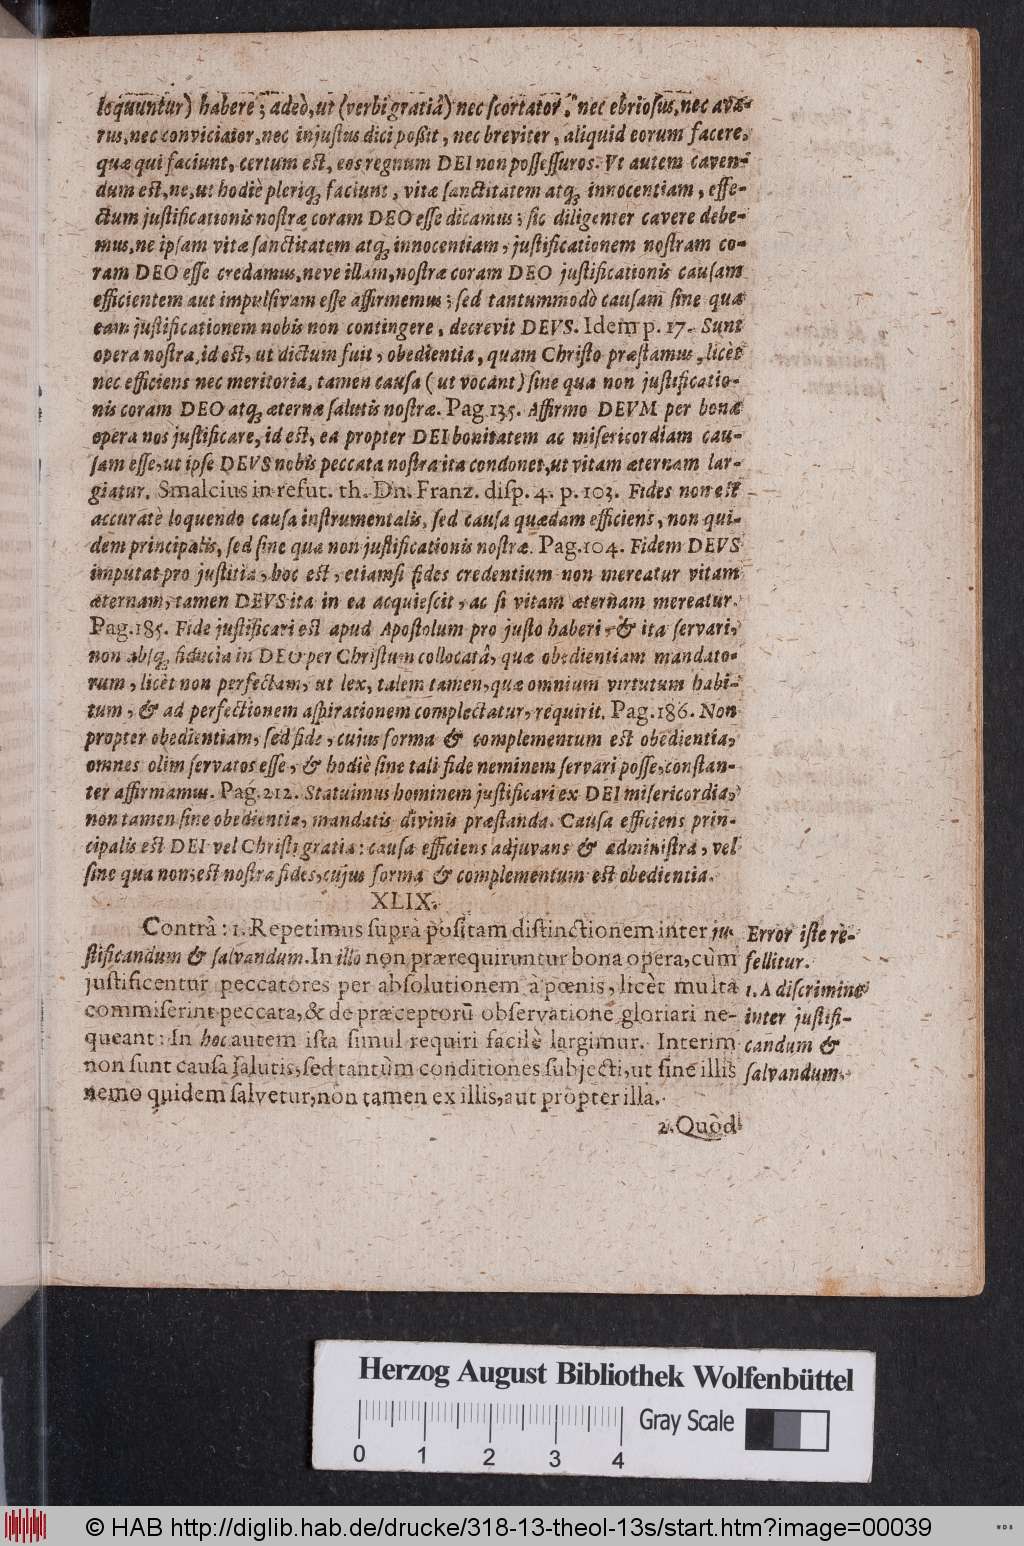 loquuntur) haberè; adeò, ut (verbi gratiâ) nec ſcortator, nec ebrioſus, nec ava-
rus, nec conviciator, nec injuſtus dici poßit, nec breviter, aliquid eorum facere,
quæ qui faciunt, certum eſt, eos regnum DEI non poſſeſſuros. Vt autem caven-
dum eſt, ne, ut hodiè pleriq; faciunt, vitæ ſanctitatem atq; innocentiam, effe-
ctum juſtificationis noſtræ coram DEO eſſe dicamus; ſic diligenter cavere debe-
mus, ne ipſam vitæ ſanctitatem atq; innocentiam, juſtificationem noſtram co-
ram DEO eſſe credamus, neve illam, noſtræ coram DEO juſtificationis cauſam
efficientem aut impulſivam eſſe affirmemus; ſed tantummodò cauſam ſine quâ
eam juſtificationem nobis non contingere, decrevit DEVS. Idem p. 17. Sunt
opera noſtra, id eſt, ut dictum fuit, obedientia, quam Chriſto præſtamus, licèt
nec efficiens nec meritoria, tamen cauſa (ut vocant) ſine qua non juſtificatio-
nis coram DEO atq; æternæ ſalutis noſtræ. Pag. 135. Affirmo DEVM per bona
opera nos juſtificare, id eſt, ea propter DEI bonitatem ac miſericordiam cau-
ſam eſſe, ut ipſe DEVS nobis peccata noſtra ita condonet, ut vitam æternam lar-
giatur. Smalcius in refut. th. Dn. Franz. diſp. 4. p. 103. Fides non eſt
accuratè loquendo cauſa inſtrumentalis, ſed cauſa quædam efficiens, non qui-
dem principalis, ſed ſine qua non juſtificationis noſtræ. Pag. 104. Fidem DEUS
imputat pro juſtitia, hoc eſt, etiamſi fides credentium non mereatur vitam
æternam, tamen DEVS ita in ea acquieſcit, ac ſi vitam æternam mereatur.
Pag. 185. Fide juſtificari eſt apud Apoſtolum pro juſto haberi, & ita ſervari,
non abſq; fiducia in DEO per Chriſtum collocatâ, quæ obedientiam mandato-
rum, licèt non perfectam, ut lex, talem tamen, quæ omnium virtutum habi-
tum, & ad perfectionem aſpirationem complectatur, requirit. Pag. 186. Non
propter obedientiam, ſed fide, cujus forma & complementum eſt obedientia,
omnes olim ſervatos eſſe, & hodiè ſine tali fide neminem ſervari poſſe, conſtan-
ter affirmamus. Pag. 212. Statuimus hominem juſtificari ex DEI miſericordia,
non tamen ſine obedientia, mandatis divinis præſtanda. Cauſa efficiens prin-
cipalis eſt DEI vel Chriſti gratia: cauſa efficiens adjuvans & adminiſtra, vel
ſine qua non, eſt noſtra fides, cujus forma & complementum eſt obedientia.
XLIX.
Contrà: 1. Repetimus ſuprà poſitam diſtinctionem inter ju-
ſtificandum & ſalvandum. In illo non prærequiruntur bona opera, cùm
juſtificentur peccatores per abſolutionem à pœnis, licèt multa
commiſerint peccata, & de præceptorũ obſervatione gloriari ne-
queant: In hoc autem iſta ſimul requiri facilè largimur. Interim
non ſunt cauſa ſalutis, ſed tantùm conditiones ſubjecti, ut ſine illis
nemo quidem ſalvetur, non tamen ex illis, aut propter illa.
2. Quòd
Error iſte re-
fellitur.
1. A diſcrimine
inter juſtifi-
candum &
ſalvandum.
Herzog August Bibliothek Wolfenbüttel
Gray Scale
0 1 2 3 4
© HAB http://diglib.hab.de/drucke/318-13-theol-13s/start.htm?image=00039